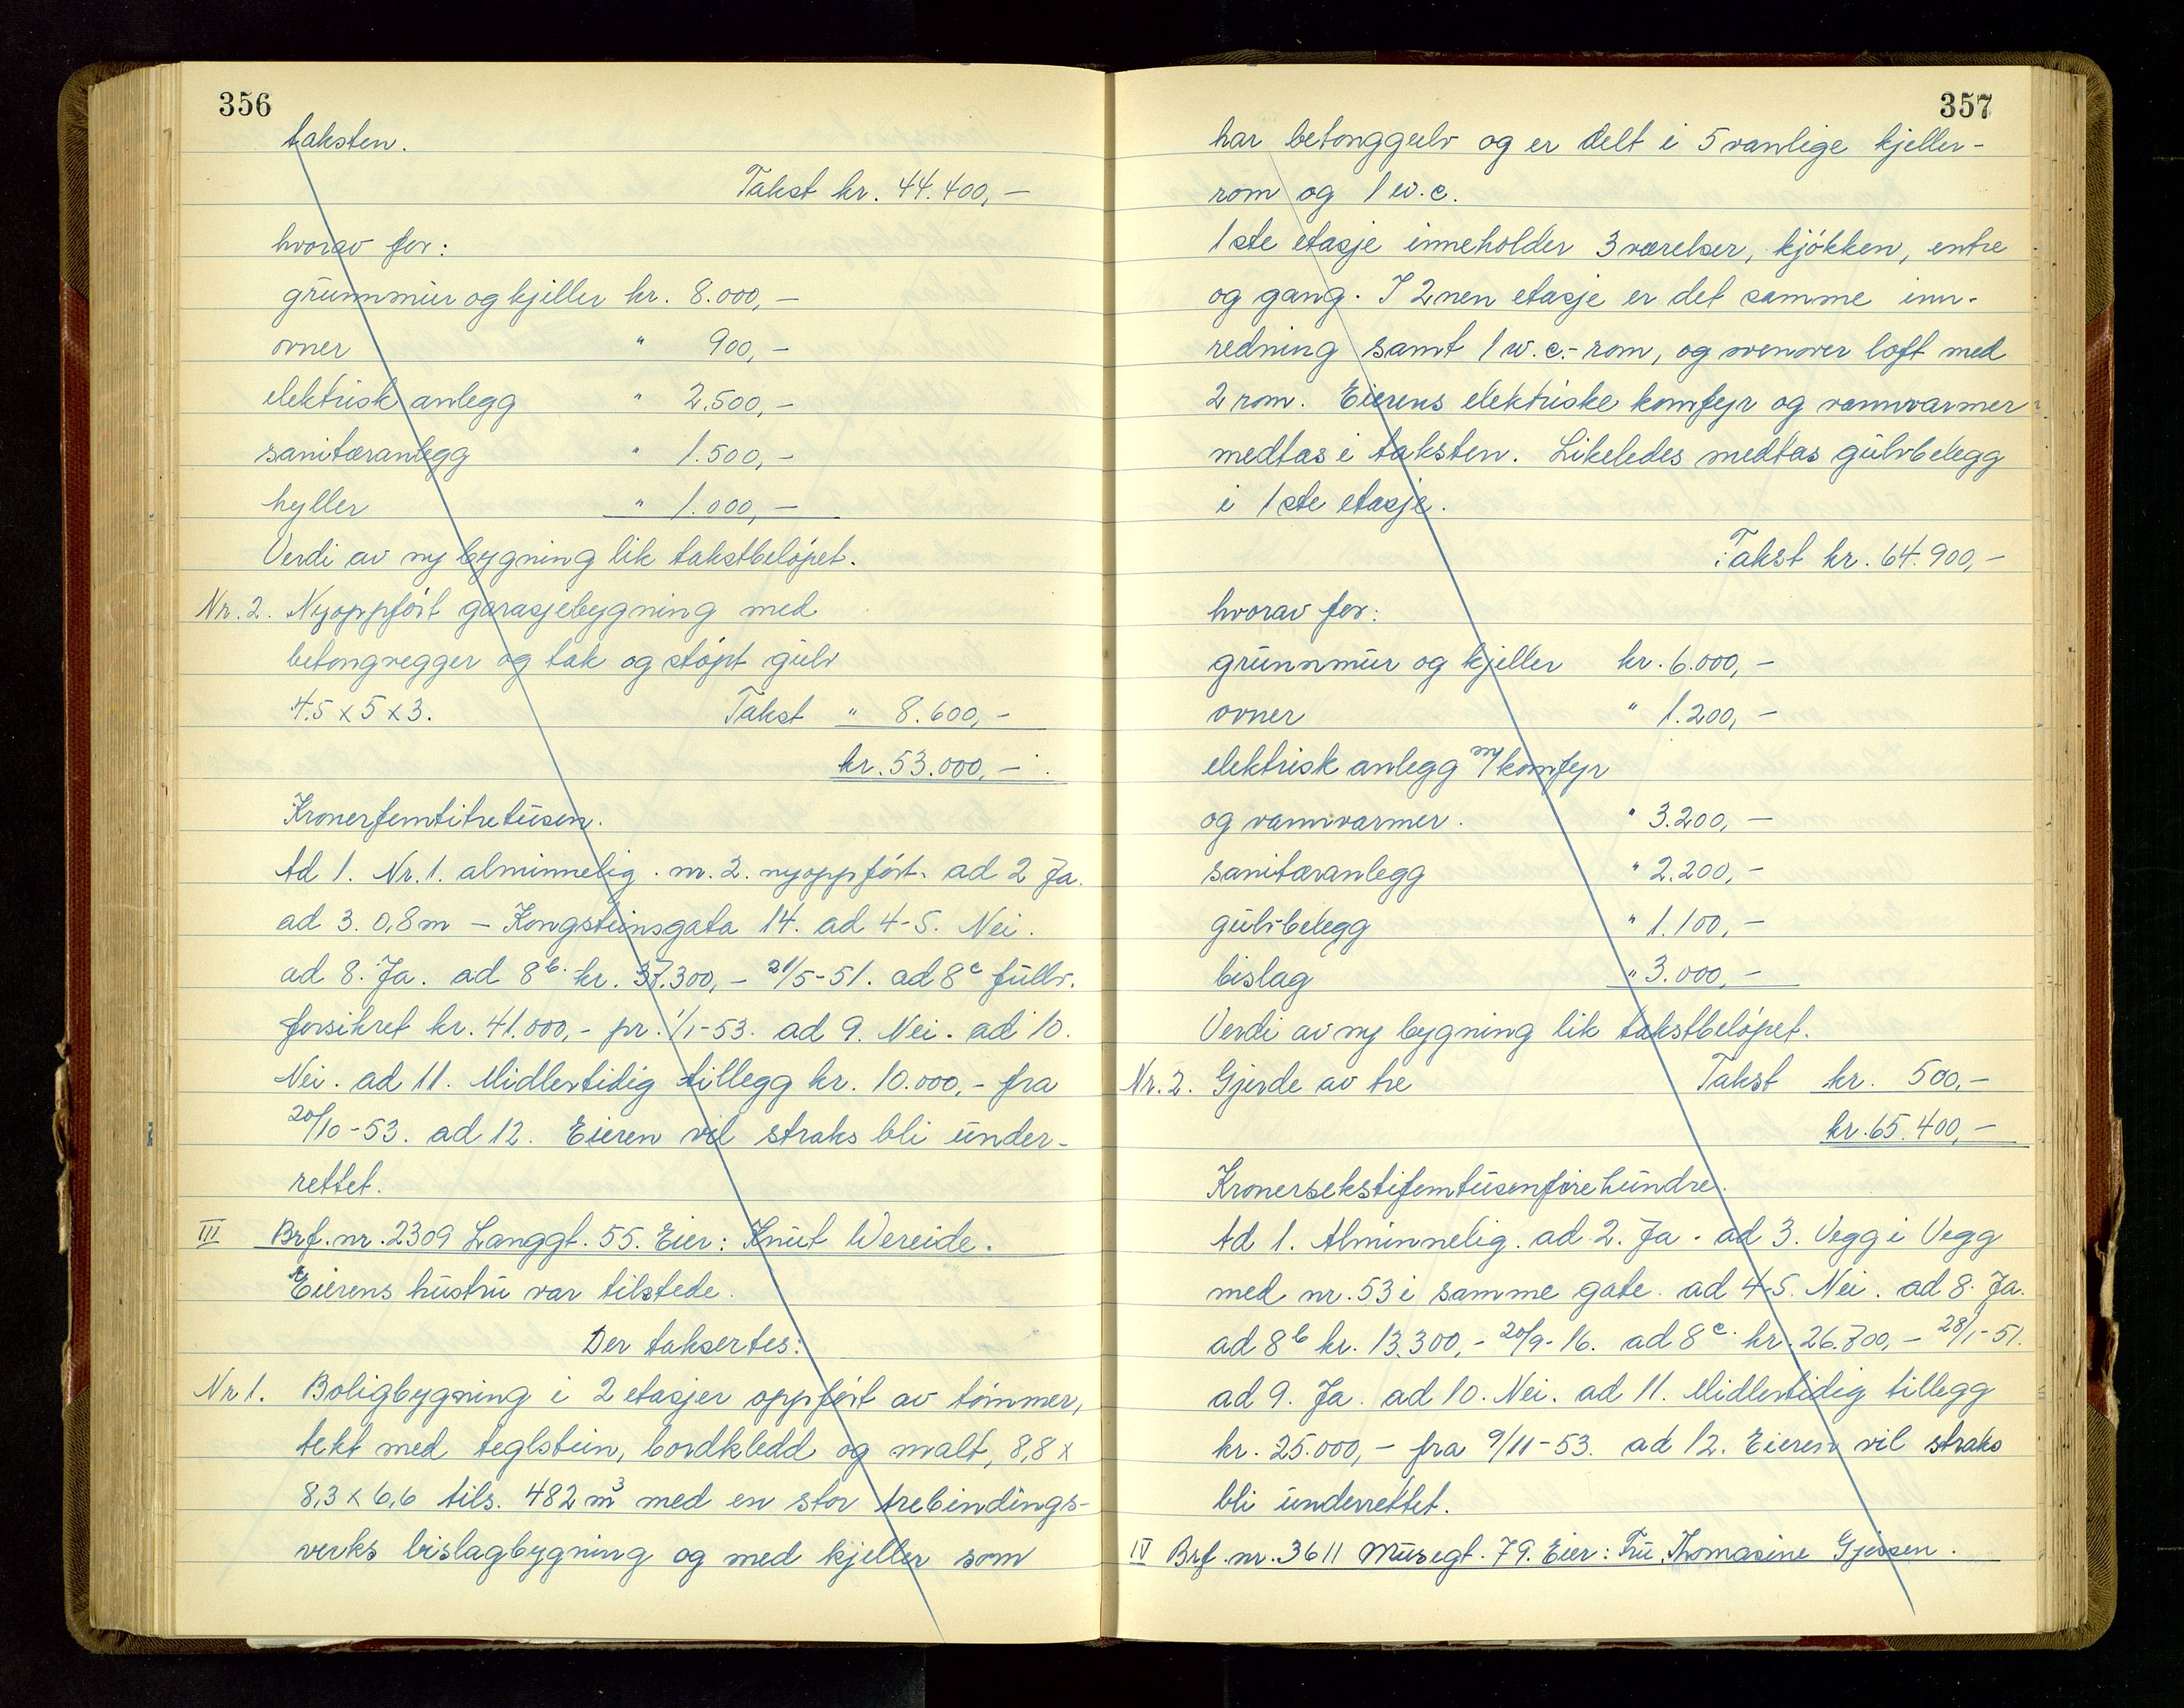 356
taksten.
Takst kr. 44.400,-
hvorav for:
grunnmur og kjeller kr. 8.000,-
ovner " 900,-
elektrisk anlegg " 2.500,-
sanitæranlegg " 1.500,-
hyller " 1.000,-
Verdi av ny bygning lik takstbeløpet.
Nr. 2. Nyoppført garasjebygning med
betongvegger og tak og støpt gulv
4,5 x 5 x 3. Takst " 8.600,-
kr. 53.000,-
Kronerfemtitretusen.
Ad 1. Nr. 1. alminnelig. nr. 2. nyoppført. ad 2 Ja.
ad 3. 0,8 m - Kongsteinsgata 14. ad 4-5. Nei.
ad 8. Ja. ad 8b. kr. 37.300,- 21/5-51. ad 8c fullv.
forsikret kr. 41.000,- pr. 1/1-53. ad 9. Nei. ad 10.
Nei. ad 11. Midlertidig tillegg kr. 10.000,- fra
20/10-53. ad 12. Eieren vil straks bli under-
rettet.
III Brf. nr. 2309 Langgt. 55. Eier: Knut Wereide.
Eierens hustru var tilstede.
Der taksertes:
Nr 1. Boligbygning i 2 etasjer oppført av tømmer,
tekt med teglstein, bordkledd og malt, 8,8 x
8,3 x 6,6 tils. 482 m3 med en stor trebindings-
verks bislagbygning og med kjeller som
357
har betonggulv og er delt i 5 vanlige kjeller-
rom og 1 w.c.
1ste etasje inneholder 3 værelser, kjøkken, entre
og gang. I 2nen etasje er det samme inn-
redning samt 1 w.c.-rom, og ovenover loft med
2 rom. Eierens elektriske komfyr og vannvarmer
medtas i taksten. Likeledes medtas gulvbelegg
i 1ste etasje.
Takst kr. 64.900,-
hvorav for:
grunnmur og kjeller kr. 6.000,-
ovner " 1.200,-
elektrisk anlegg m/komfyr
og vannvarmer. " 3.200,-
sanitæranlegg " 2.200,-
gulvbelegg " 1.100,-
bislag " 3.000,-
Verdi av ny bygning lik takstbeløpet.
Nr. 2. Gjerde av tre Takst kr. 500,-
kr. 65.400,-
Kronersekstifemtusenfirehundre.
Ad 1. Alminnelig. ad 2. Ja. ad 3. Vegg i Vegg
med nr. 53 i samme gate. ad 4-5. Nei. ad 8. Ja.
ad 8b kr. 13.300,- 20/9-16. ad 8c. kr. 26.700,- 28/1-51.
ad 9. Ja. ad 10. Nei. ad 11. Midlertidig tillegg
kr. 25.000,- fra 9/11-53. ad 12. Eieren vil straks
bli underrettet.
IV Brf. nr. 3611 Musegt. 79. Eier: Fru Thomasine Gjessen.